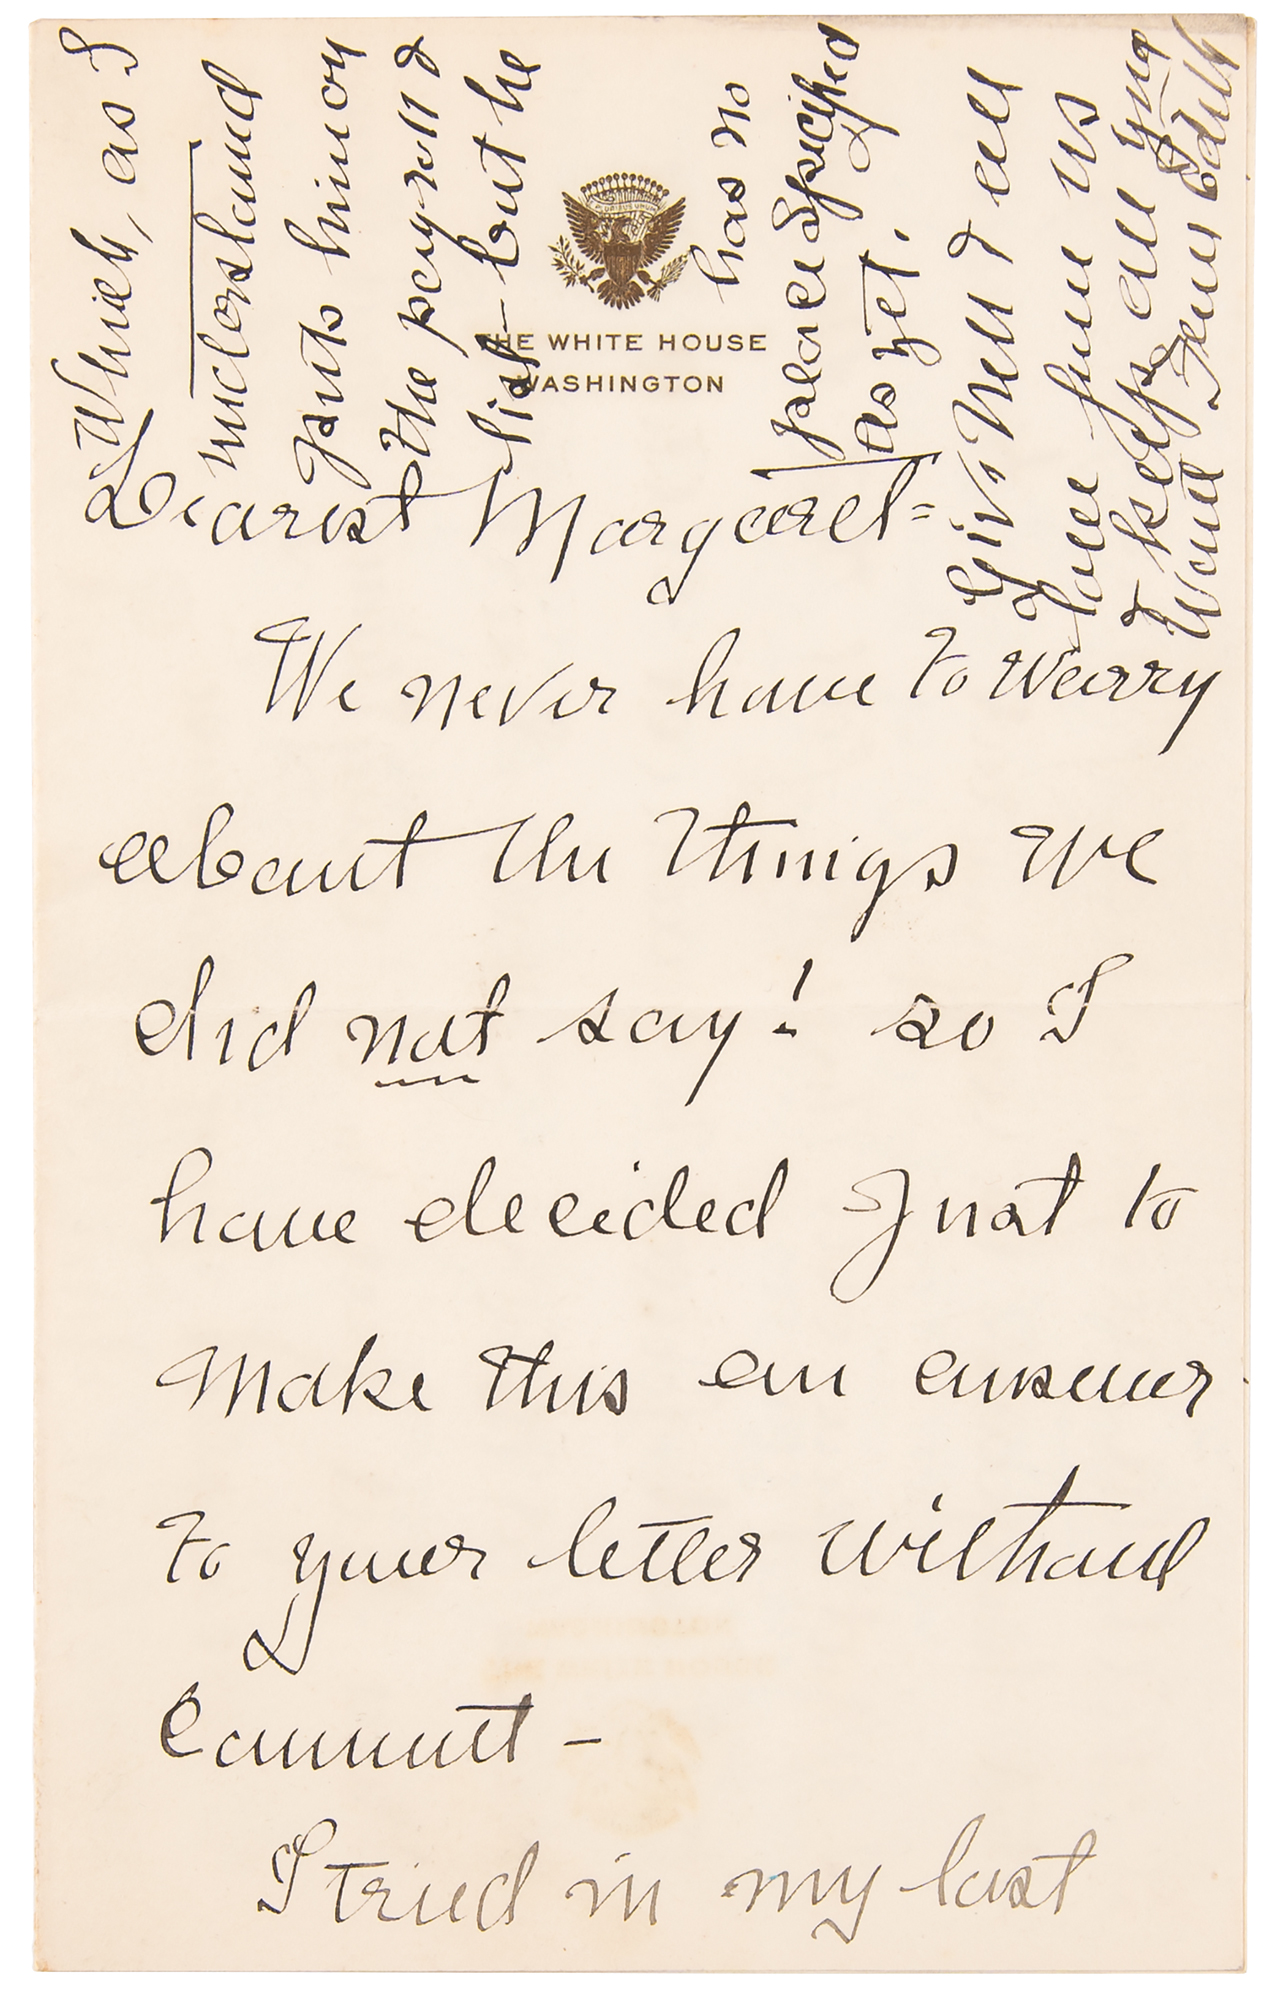 E PLURIBUS UNUM
THE WHITE HOUSE
WASHINGTON
Dearest Margaret=
We never have to worry
about the things we
did not say! so I
have decided Just to
make this an answer
to your letter without
Comment –
I tried in my last
Which, as I
understand
puts him on
the pay-roll &
list – but he
has no
place specified
as yet.
Give Nell & all
love from us
& keep all you
want Yours Edith